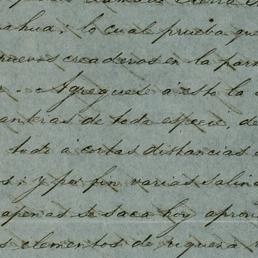 ahua; lo cual prueba que
nuevos criaderos en la par
. Agreguese á esto la a
anteras de toda especie, de
todo á cortas distancias
s; y por fin varias salin
apenas se saca hoy apro
s elementos de riqueza